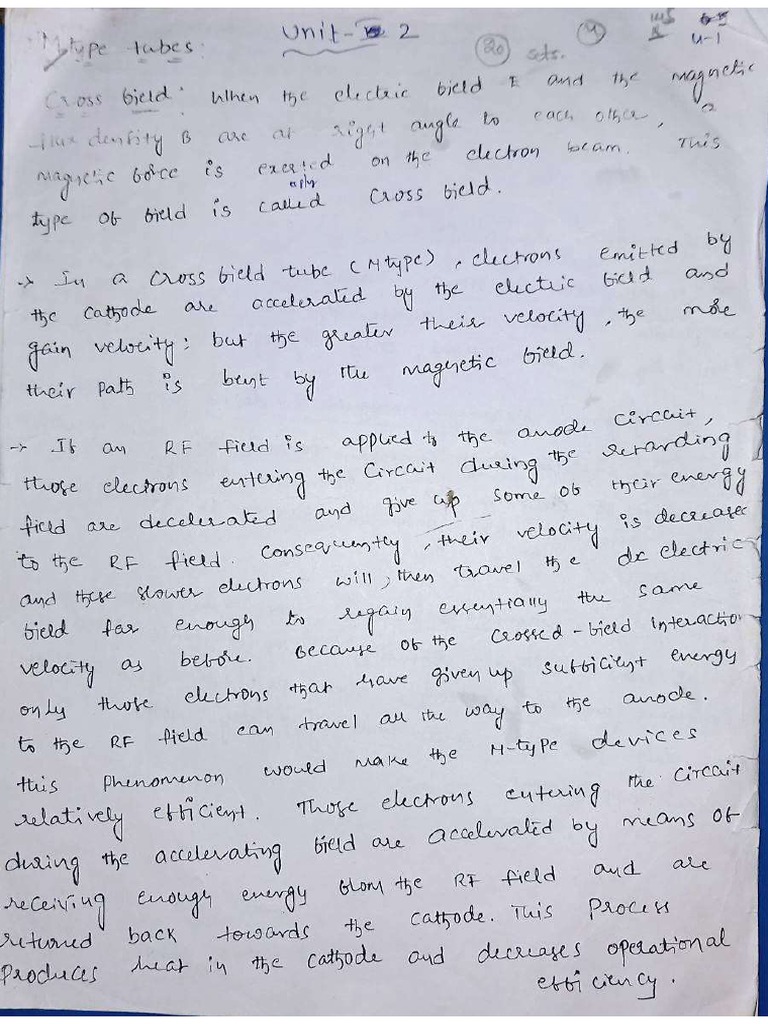 Unit - 2
M type tubes:
20 sets.
4
u-1
Cross field: When the electric field E and the magnetic
flux density B are at right angle to each other, a
magnetic force is exerted on the electron beam. This
type of field is called Cross field.
-> In a cross field tube (M type), electrons emitted by
the cathode are accelerated by the electric field and
gain velocity: but the greater their velocity, the more
their path is bent by the magnetic field.
-> If an RF field is applied to the anode circuit,
those electrons entering the circuit during the retarding
field are decelerated and give up some of their energy
to the RF field. Consequently, their velocity is decreased
and these slower electrons will, then travel the dc electric
field far enough to regain essentially the same
velocity as before. Because of the crossed-field interaction
only those electrons that have given up sufficient energy
to the RF field can travel all the way to the anode.
this phenomenon would make the M-type devices
relatively efficient. Those electrons entering the circuit
during the accelerating field are accelerated by means of
receiving enough energy from the RF field and are
returned back towards the cathode. This process
produces heat in the cathode and decreases operational
efficiency.